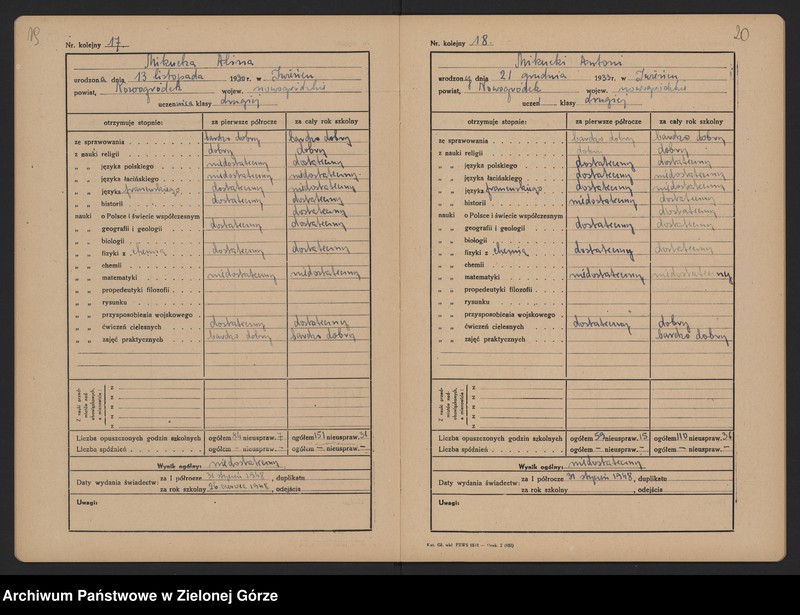 19
Nr. kolejny 17
Mikucka Alina
urodzona dnia 13 listopada 1930 r. w Iwieńcu
powiat, Nowogródek wojew. nowogródzkie
uczennica klasy drugiej
otrzymuje stopnie: za pierwsze półrocze za cały rok szkolny
ze sprawowania bardzo dobry bardzo dobry
z nauki religii dobry dobry
„ „ języka polskiego niedostateczny dostateczny
„ „ języka łacińskiego niedostateczny niedostateczny
„ „ języka francuskiego dostateczny niedostateczny
„ „ historii dostateczny dostateczny
nauki o Polsce i świecie współczesnym dostateczny
„ „ geografii i geologii dostateczny dostateczny
„ „ biologii
„ „ fizyki z chemią dostateczny dostateczny
„ „ chemii
„ „ matematyki niedostateczny niedostateczny
„ „ propedeutyki filozofii
„ „ rysunku
„ „ przysposobienia wojskowego
„ „ ćwiczeń cielesnych dostateczny dostateczny
„ „ zajęć praktycznych bardzo dobry bardzo dobry
Liczba opuszczonych godzin szkolnych ogółem nieuspraw. ogółem 151 nieuspraw.
Liczba spóźnień ogółem — nieuspraw. — ogółem — nieuspraw. —
Wynik ogólny: niedostateczny
Daty wydania świadectw: za I półrocze 31 styczeń 1948, duplikatu
za rok szkolny 26 czerwiec 1948, odejścia
Uwagi:
20
Nr. kolejny 18
Mikucki Antoni
urodzony dnia 21 grudnia r. w Iwieńcu
powiat, Nowogródek wojew. nowogródzkie
uczeń klasy drugiej
otrzymuje stopnie: za pierwsze półrocze za cały rok szkolny
ze sprawowania bardzo dobry bardzo dobry
z nauki religii dobry dobry
„ „ języka polskiego dostateczny dostateczny
„ „ języka łacińskiego dostateczny niedostateczny
„ „ języka francuskiego dostateczny niedostateczny
„ „ historii niedostateczny dostateczny
nauki o Polsce i świecie współczesnym dostateczny
„ „ geografii i geologii dostateczny dostateczny
„ „ biologii
„ „ fizyki z chemią dostateczny dostateczny
„ „ chemii
„ „ matematyki niedostateczny niedostateczny
„ „ propedeutyki filozofii
„ „ rysunku
„ „ przysposobienia wojskowego
„ „ ćwiczeń cielesnych dostateczny dobry
„ „ zajęć praktycznych bardzo dobry
Liczba opuszczonych godzin szkolnych ogółem 59 nieuspraw. 15 ogółem 110 nieuspraw.
Liczba spóźnień ogółem — nieuspraw. — ogółem — nieuspraw. —
Wynik ogólny: niedostateczny
Daty wydania świadectw: za I półrocze 31 styczeń 1948, duplikatu
za rok szkolny , odejścia
Uwagi:
Archiwum Państwowe w Zielonej Górze